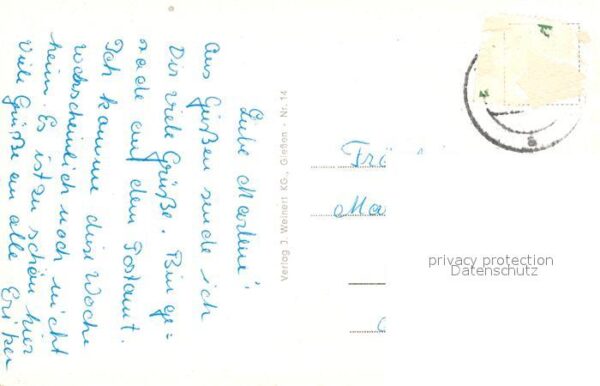 Liebe Marlene!
Aus Gießen sende ich
Dir viele Grüße. Bin ge=
rade auf dem Postamt.
Ich komme diese Woche
wahrscheinlich noch nicht
heim. Es ist zu schön hier
Viele Grüße an alle Erika
Verlag J. Weinert KG., Gießen - Nr. 14
Frä
Ma
privacy protection
Datenschutz